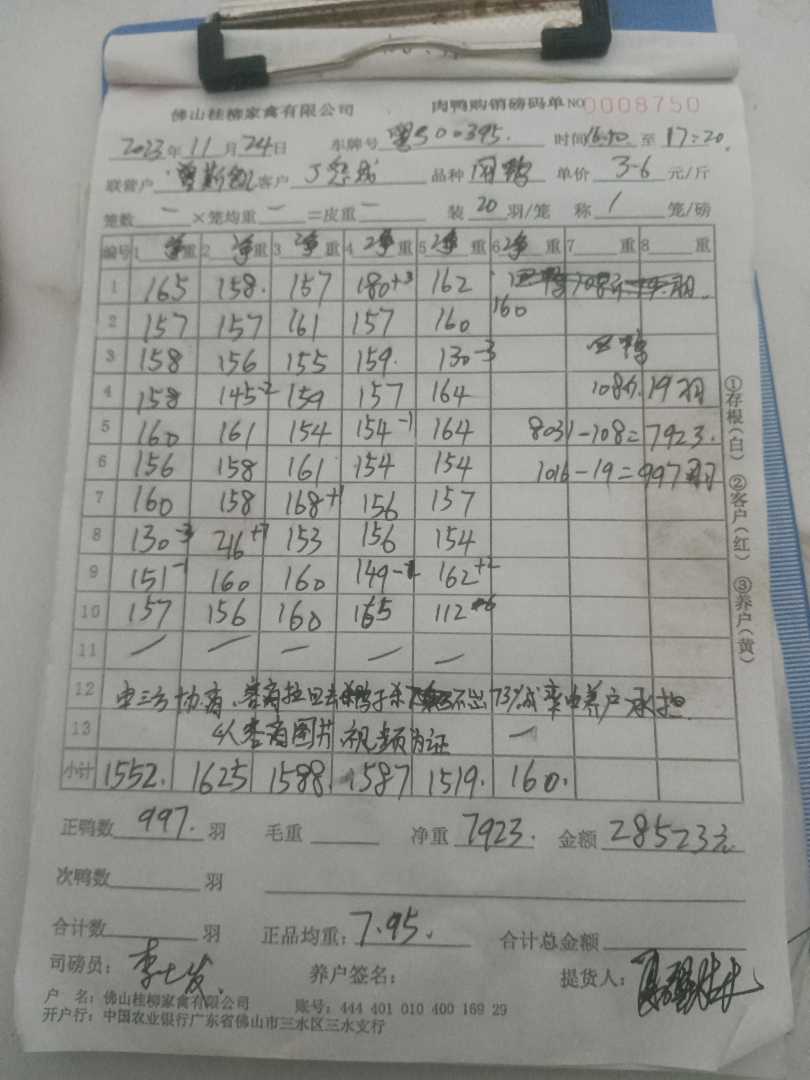 佛山桂柳家禽有限公司 肉鸭购销磅码单 NO 0008750
2023年11月24日 车牌号 粤S00395. 时间16:10至17:20.
联营户 客户 品种 单价 3-6 元/斤
笼数 一 ×笼均重 一 =皮重 一 装 20 羽/笼 称 1 笼/磅
编号 1 净重 2 净重 3 净重 4 净重 5 净重 6 净重 7 重 8 重
1 165 158. 157 180+3 162
2 157 157 161 157 160 160
3 158 156 155 159. 130-3 鸭
4 158 145-2 159 157 164 108斤. 19羽
5 160 161 154 154-1 164 8031-108=7923.
6 156 158 161 154 154 1016-19=997羽
7 160 158 168+1 156 157
8 130-3 216+7 153 156 154
9 151-1 160 160 149 162+2
10 157 156 160 165 112
11 一 一 一 一 一
12 由三方协商、客商拉回去 不出73%成率由养户承担.
13 以客商图片、视频为证 一
小计 1552. 1625 1588. 1587 1519. 160.
正鸭数 997. 羽 毛重 净重 7923. 金额 28523元
次鸭数 羽
合计数 羽 正品均重: 7.95. 合计总金额
司磅员: 李七发 养户签名: 提货人:
户 名: 佛山桂柳家禽有限公司 账号: 444 401 010 400 169 29
开户行: 中国农业银行广东省佛山市三水区三水支行
①存根(白) ②客户(红) ③养户(黄)